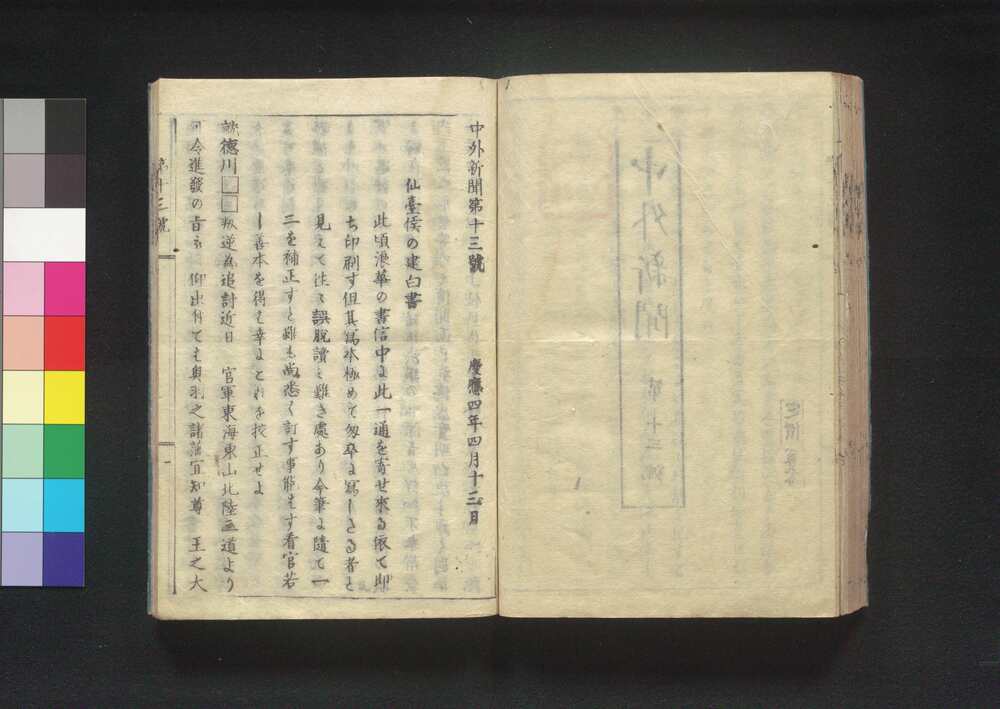 中外新聞第十三號
慶應四年四月十三日
仙臺侯の建白書
此頃浪華の書信中に此一通を寄せ來る依て即
ち印刷す但其寫本極めて匆卒に寫しさる者と
見えて往々誤脱讀に難き處あり今筆に隨て一
二を補正すと雖も尚悉く訂す事能はす看官若
し善本を得は幸によ とれを挍正せよ
就德川□□叛逆為追討近日 官軍東海東山北陸三道より
可令進發の旨被 仰出付ても奥羽之諸藩宜知尊 王之大
第十三號
一
中外新聞
第十三號